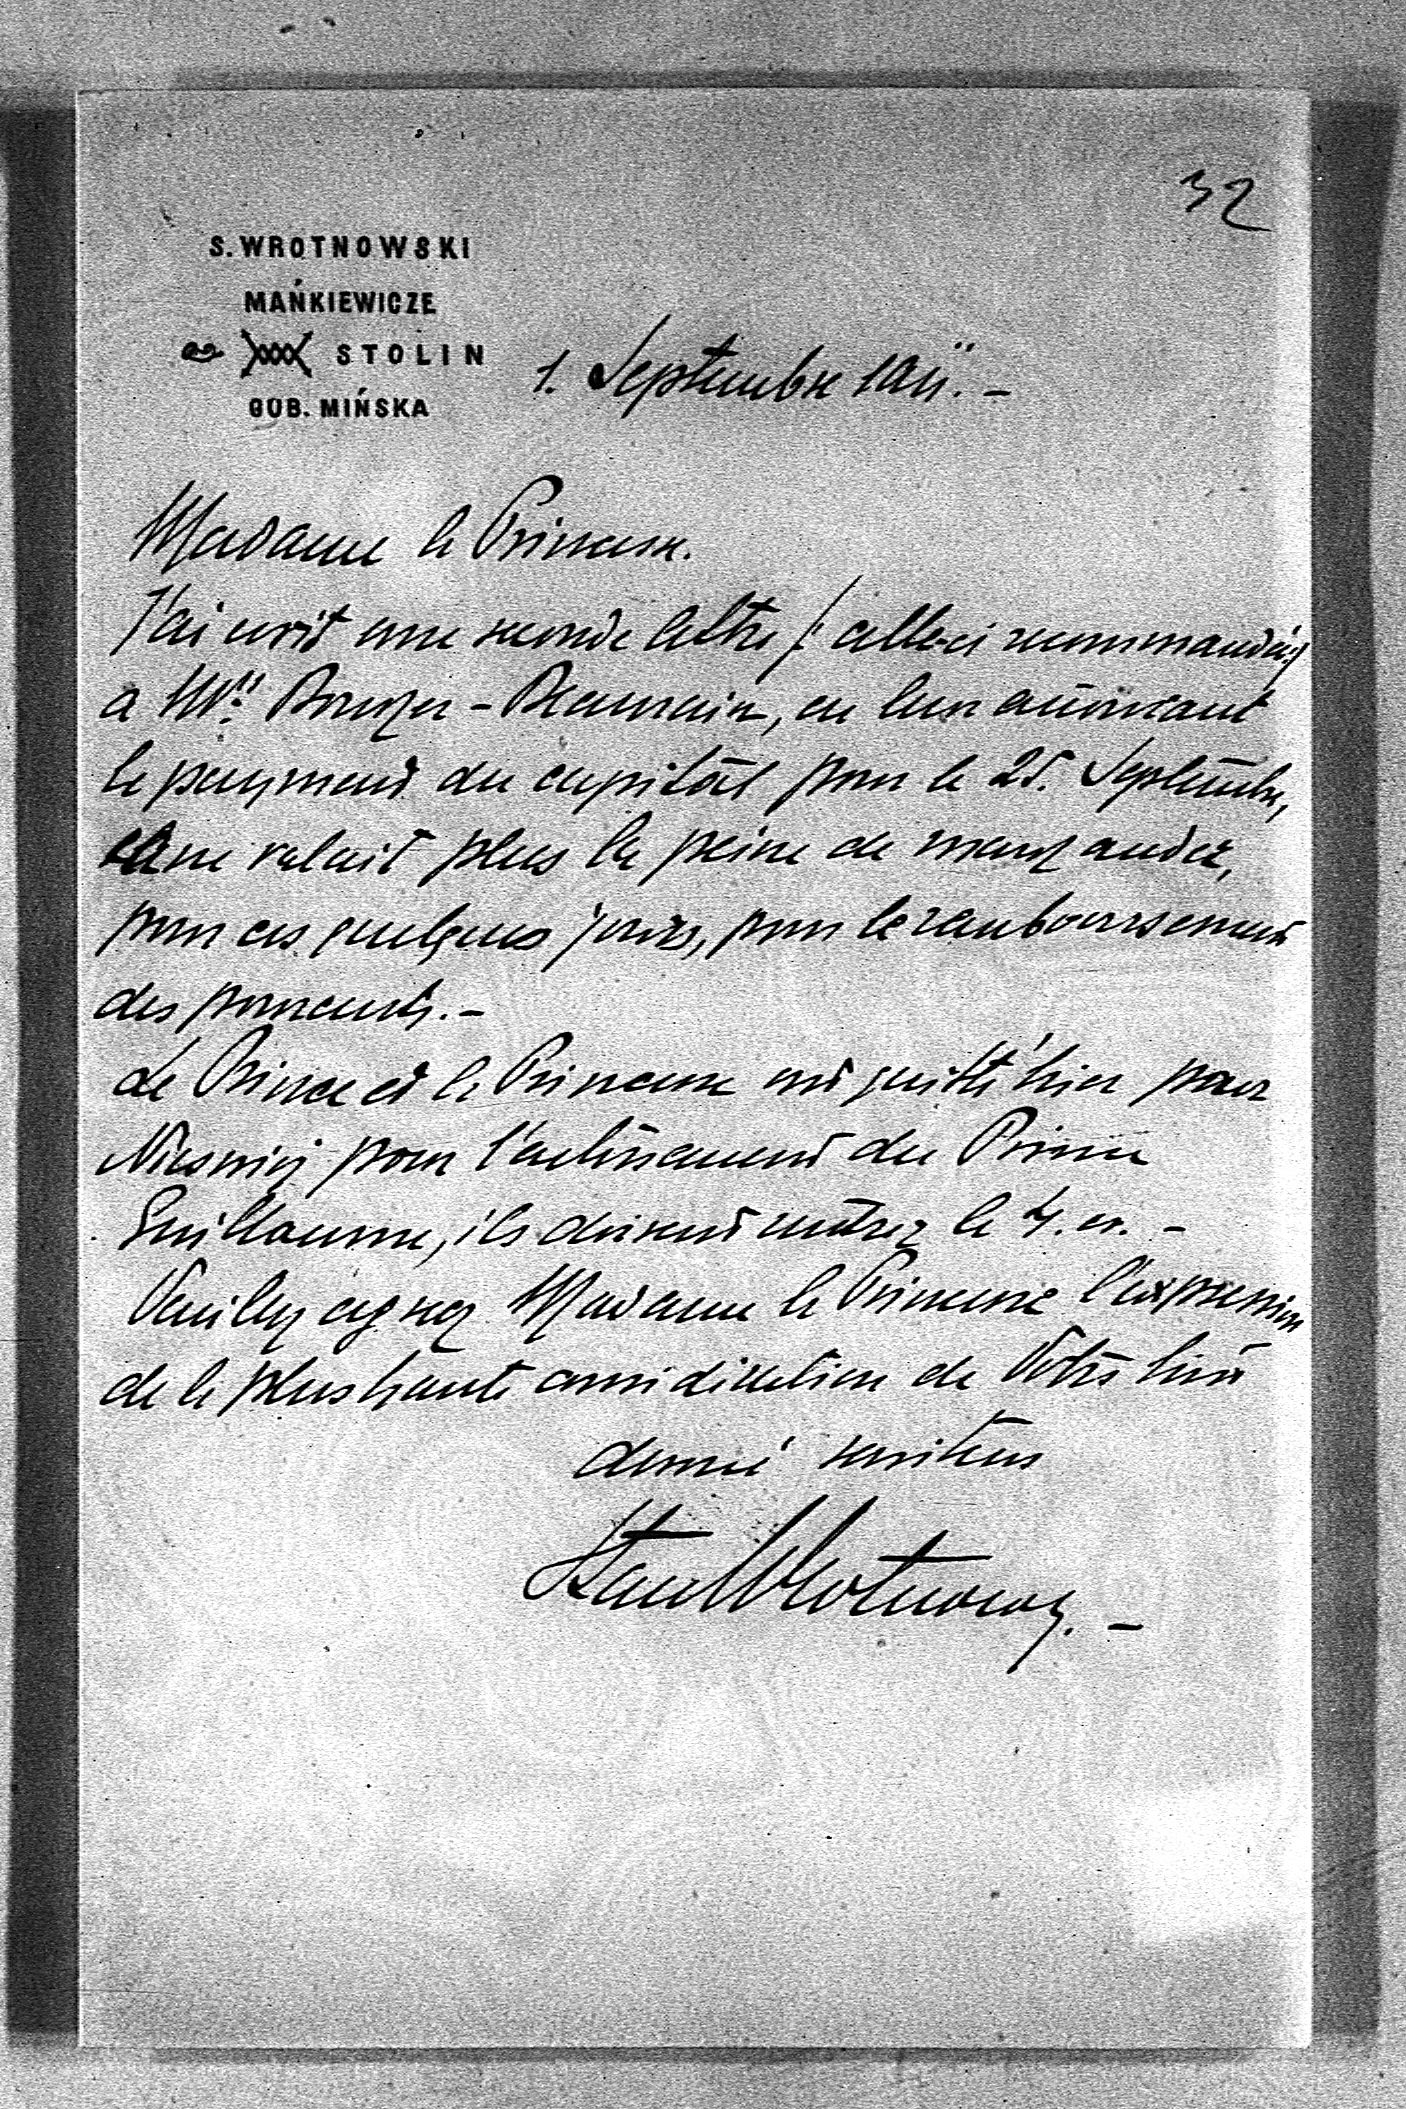 32
S. WROTNOWSKI
MAŃKIEWICZE
STOLIN
GUB. MIŃSKA
1. Septembre 1911. -
Madame la Princesse.
J'ai ecrit une seconde lettre /: celle-ci recommandée:/
à Mrs, en leur anonceant
le payment du capital pour le 25. Septembre,
ne valait plus la peine de marchander,
pour ces quelques jours, pour le remboursement
des pourcents. -
Le Prince et la Princesse ont quitté hier pour
Nieswiez pour l'enterrement du Prince
Guillaume, ils doivent rentrer le 4. cr. -
Veuillez agreer Madame la Princesse l'expression
de la plus haute consideration de Votre très
devoué serviteur
Stan Wrotnowski. -